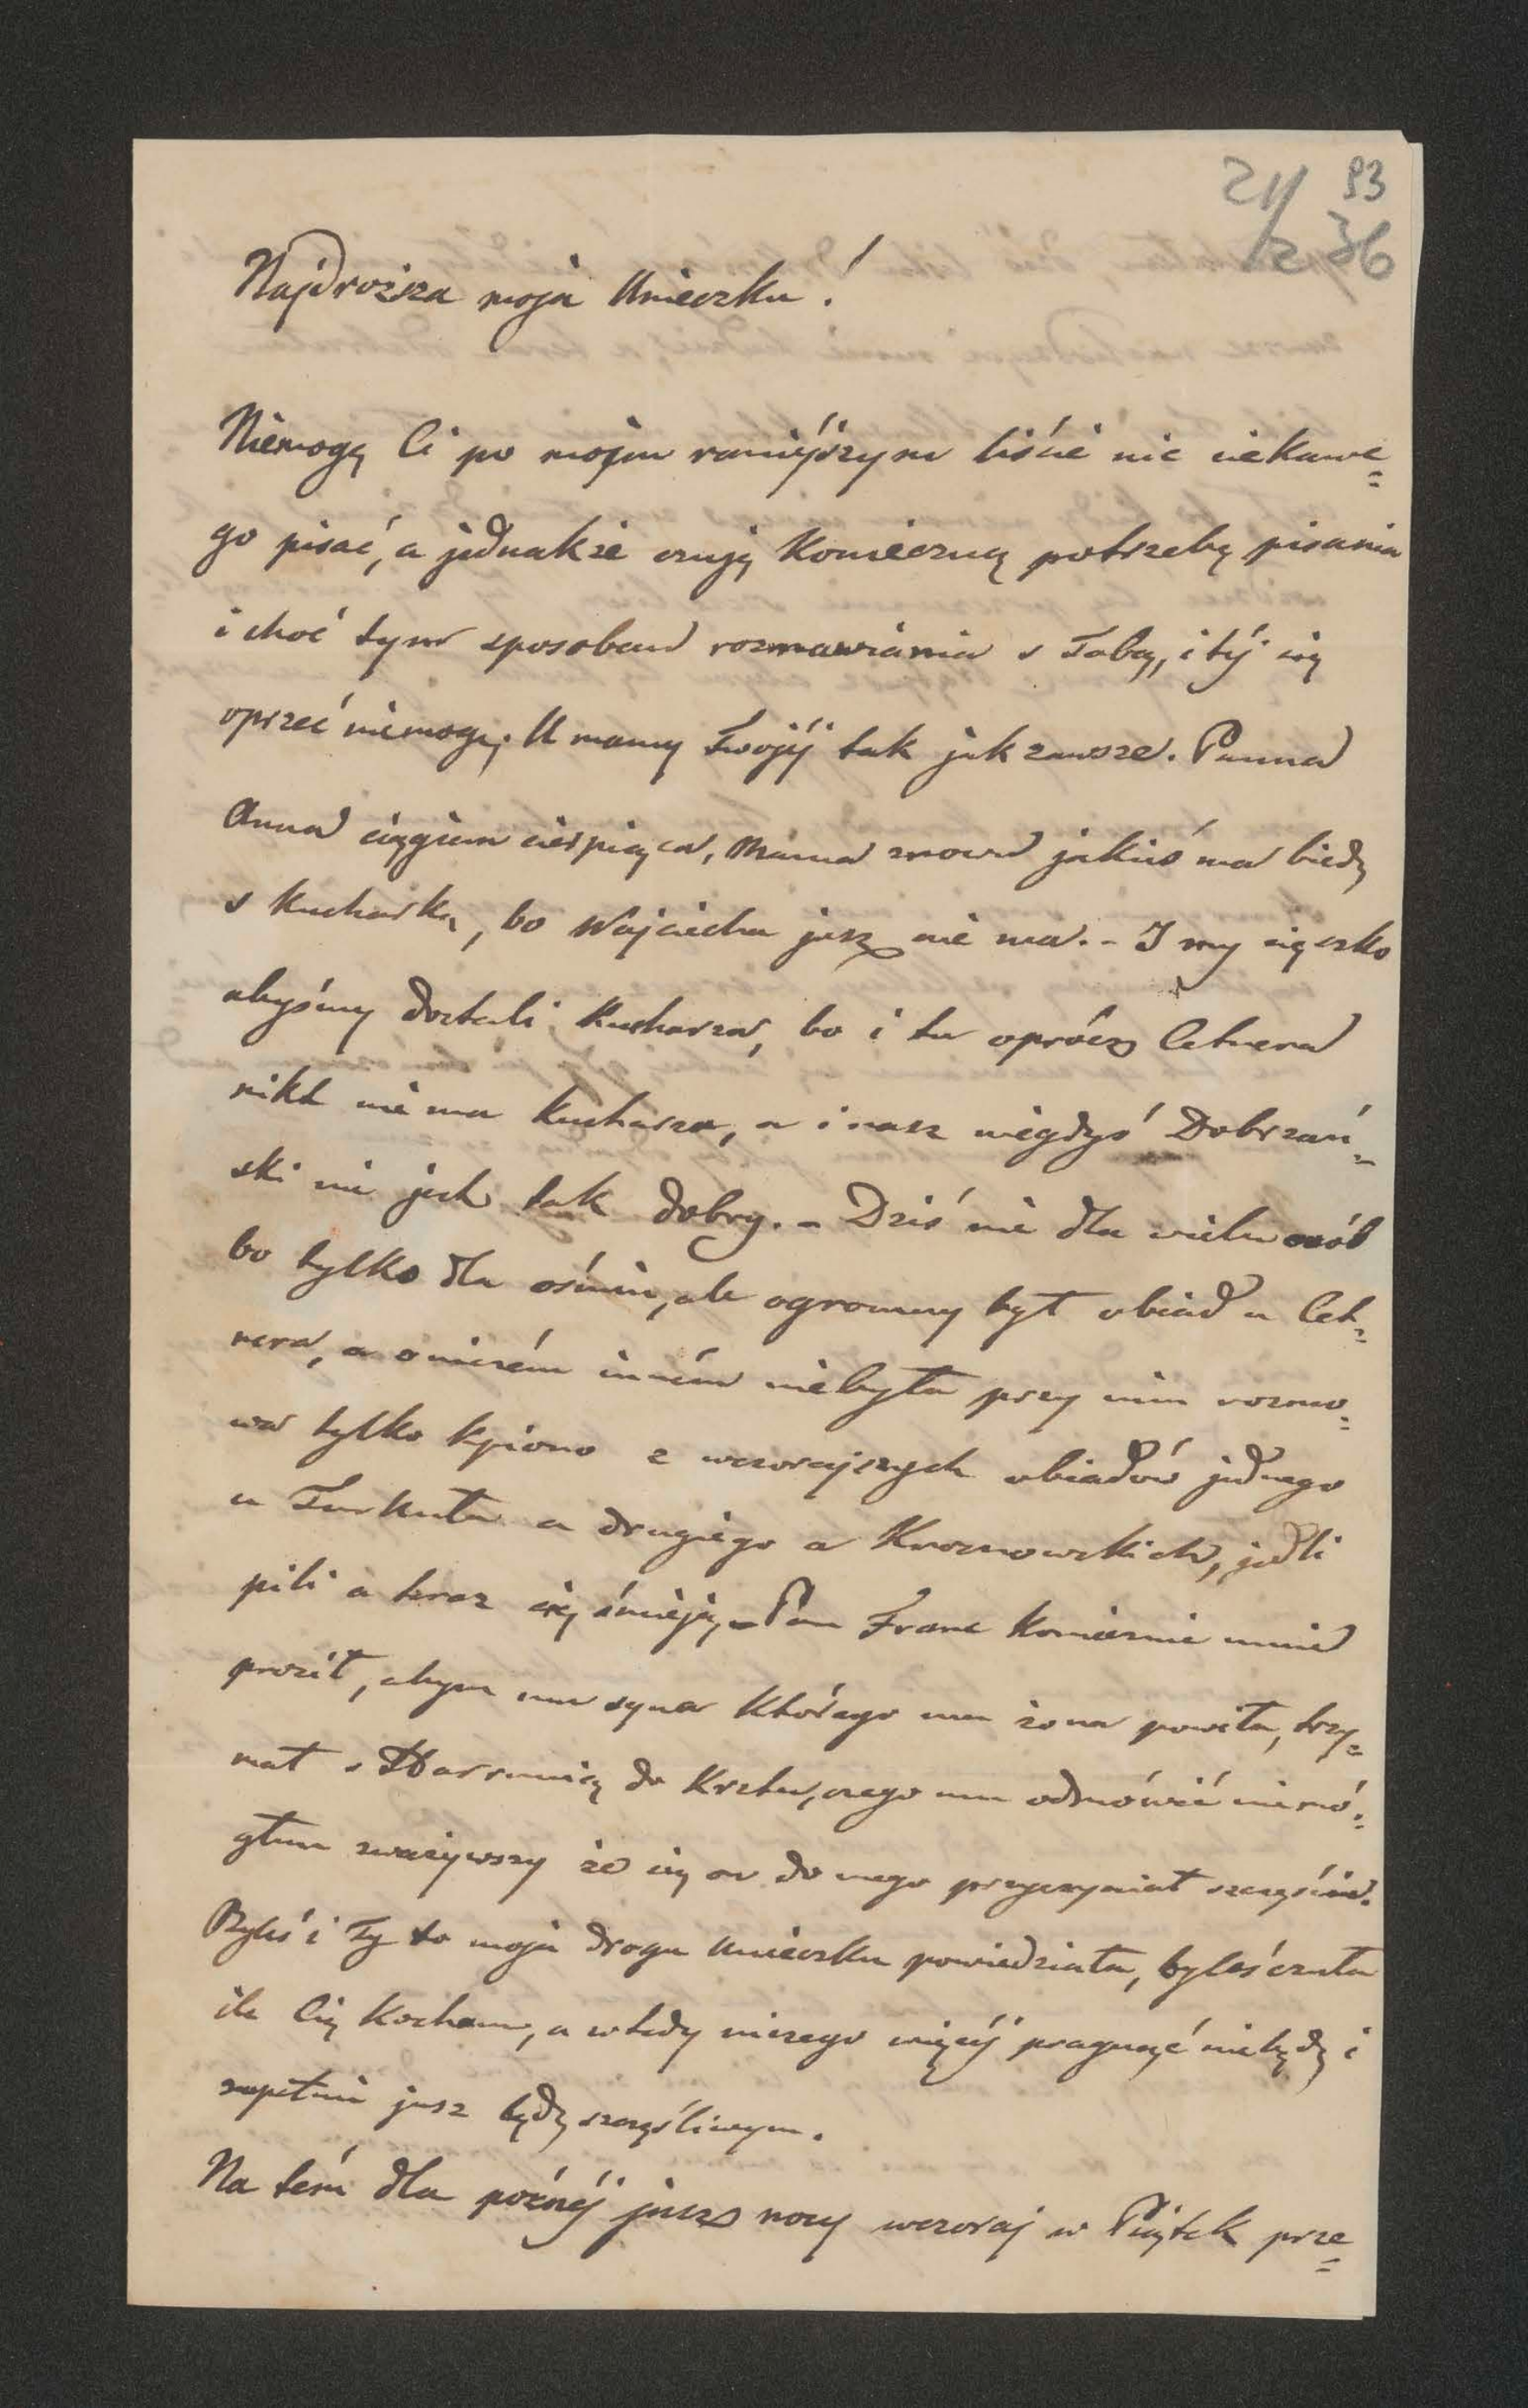 21/2 36
93
Najdroższa moja Unieczku!
Niemogę Ci po mojim raniejszym liście nic ciekawe=
go pisać, a jednakże czuję konieczną potrzebę pisania
i choć tym sposobem rozmawiania s Tobą, i téj się
oprzeć niemogę. U mamy Twojéj tak jak zawsze. Panna
Anna ciągiem cierpiąca, Mama znowu jakiś ma biedę
s kucharką, bo Wojciecha jusz nie ma. - I my cięszko
abyśmy dostali kucharza, bo i tu oprócz Cetnera
nikt nie ma kucharza, a i nasz niegdyś Dobrzań=
ski nie jest tak dobry. - Dziś nie dla wielu osób
bo tylko dla ośmiu, ale ogromny był obiad u Cet=
nera, a o niczém inném niebyła przy nim rozmo=
wa tylko kpiono z wczorajszych obiadów jednego
u Turkuła a drugiego u Krosnowskich, jedli
pili a teraz się śmieją. - Pan Franc koniecznie mnie
prosił, abym mu syna którego mu żona powiła, trzy=
mał s do Krztu, czego mu odmówić niemó=
głem zważywszy że się on do mego przyczyniał szczęścia.
Byleś i Ty to moja droga Unieczku powiedziała, byleś czuła
ile Cię kocham, a wtedy niczego więcéj pragnąć niebędę i
zupełnie jusz będę szczęśliwym.
Na tém dla poźnéj jusz nocy wczoraj w Piątek prze=